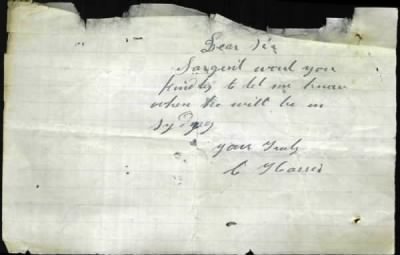 Dear Sir
Sargent want you
kindly to let me know
when he will be in
Sydney
your Truly
C Harris